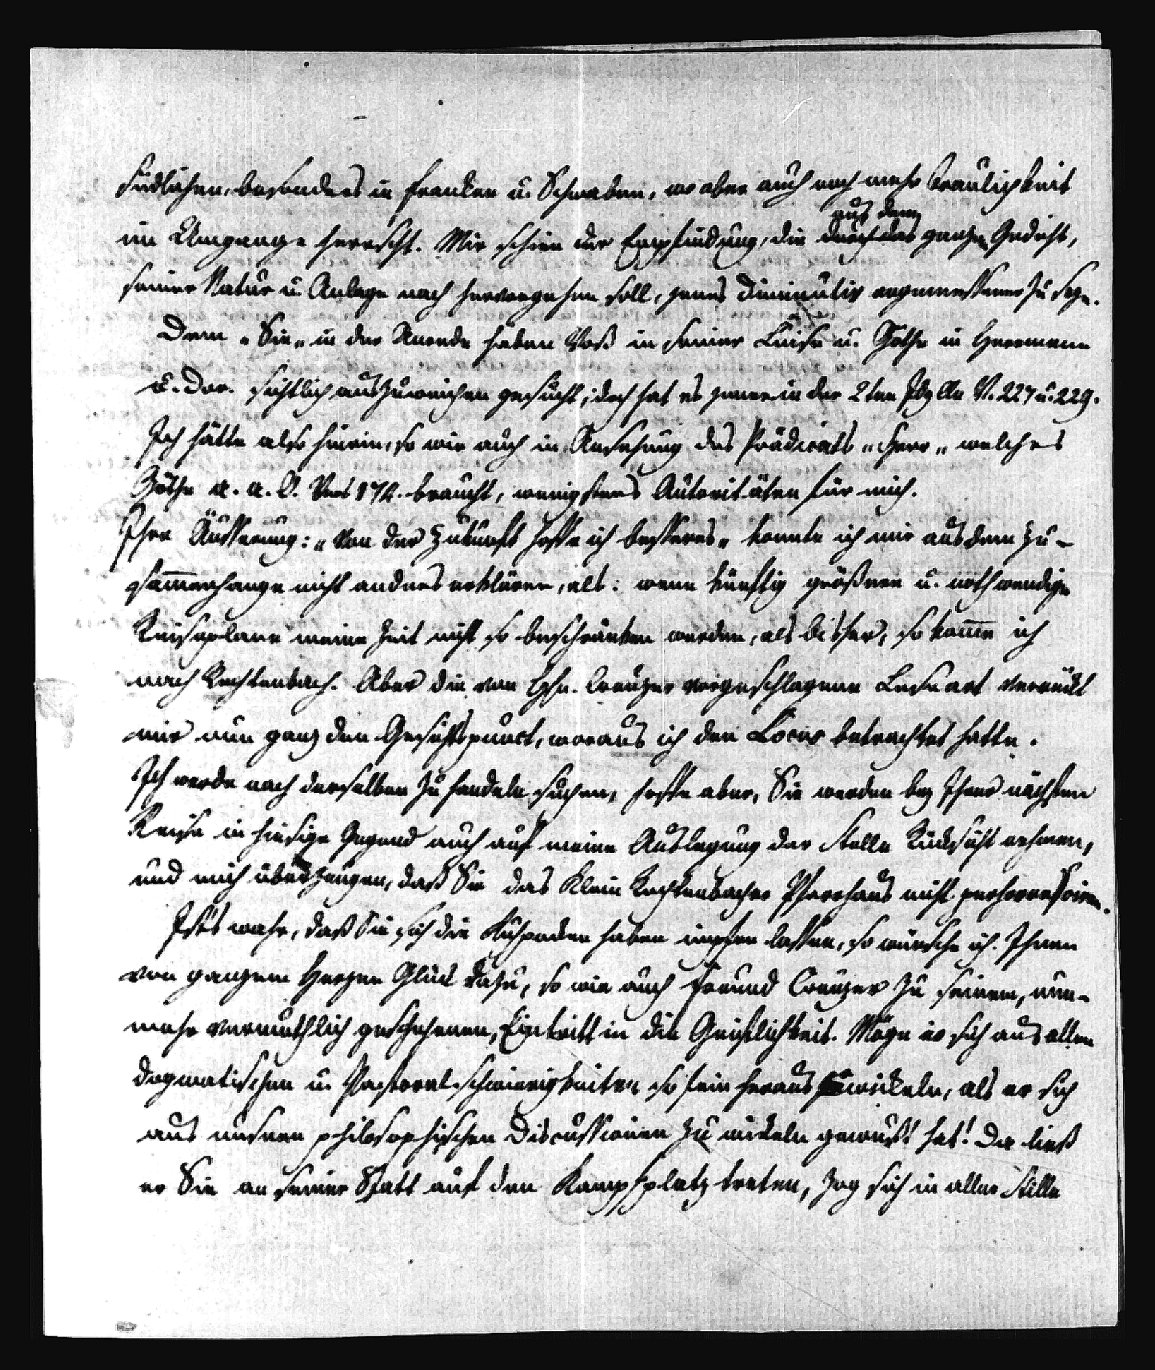 südlichen, besonders in Franken u. Schwaben, wo aber auch noch mehr Traulichkeit
im Umgange herrscht. Mir schien der Empfindung, die durch das ganze Gedicht,
aus dem
seiner Natur u. Anlage nach hervorgehen soll, jenes Diminutiv angemessener zu seyn.
Dem „Sie„ in der Anrede haben Voß in seiner Luise u. Göthe in Herrmann
u. Dor. sichtlich auszuweichen gesucht; doch hat es jener in der 2ten Idylle V. 227 u. 229.
Ich hätte also hierin, so wie auch in Ansehung des Prädicats „Herr„ welches
Göthe a. a. O. Vers 174. braucht, wenigstens Autoritäten für mich.
Ihre Äusserung: „Von der Zukunft hoffe ich besseres„ konnte ich mir aus dem Zu-
sammenhange nicht anders erklären, als: wenn künftig größere u. nothwendige
Reiseplane meine Zeit nicht so beschränken werden, als bisher, so komme ich
nach Rechtenbach. Aber die von Hrn. Creuzer vorgeschlagene Leseart verrückt
mir nun ganz den Gesichtspunct, woraus ich den Locus betrachtet hatte.
Ich werde nach derselben zu handeln suchen, hoffe aber, Sie werden bey Ihrer nächsten
Reise in hiesige Gegend auch auf meine Auslegung der Stelle Rücksicht nehmen,
und mich überzeugen, daß Sie das Klein Rechtenbacher Pfarrhaus nicht perhorresciren.
Ist's wahr, daß Sie sich die Kuhpocken haben impfen lassen, so wünsche ich Ihnen
von ganzem Herzen Glück dazu, so wie auch Freund Creuzer zu seinem, nun-
mehr vermuthlich geschehenen, Eintritt in die Geistlichkeit. Möge er sich aus allen
dogmatischen u. Pastoral-schwierigkeiten so fein heraus wickeln, als er sich
aus unsern philosophischen Discussionen zu wickeln gewußt hat! Da ließ
er Sie an seiner Statt auf den Kampfplatz treten, zog sich in aller Stille